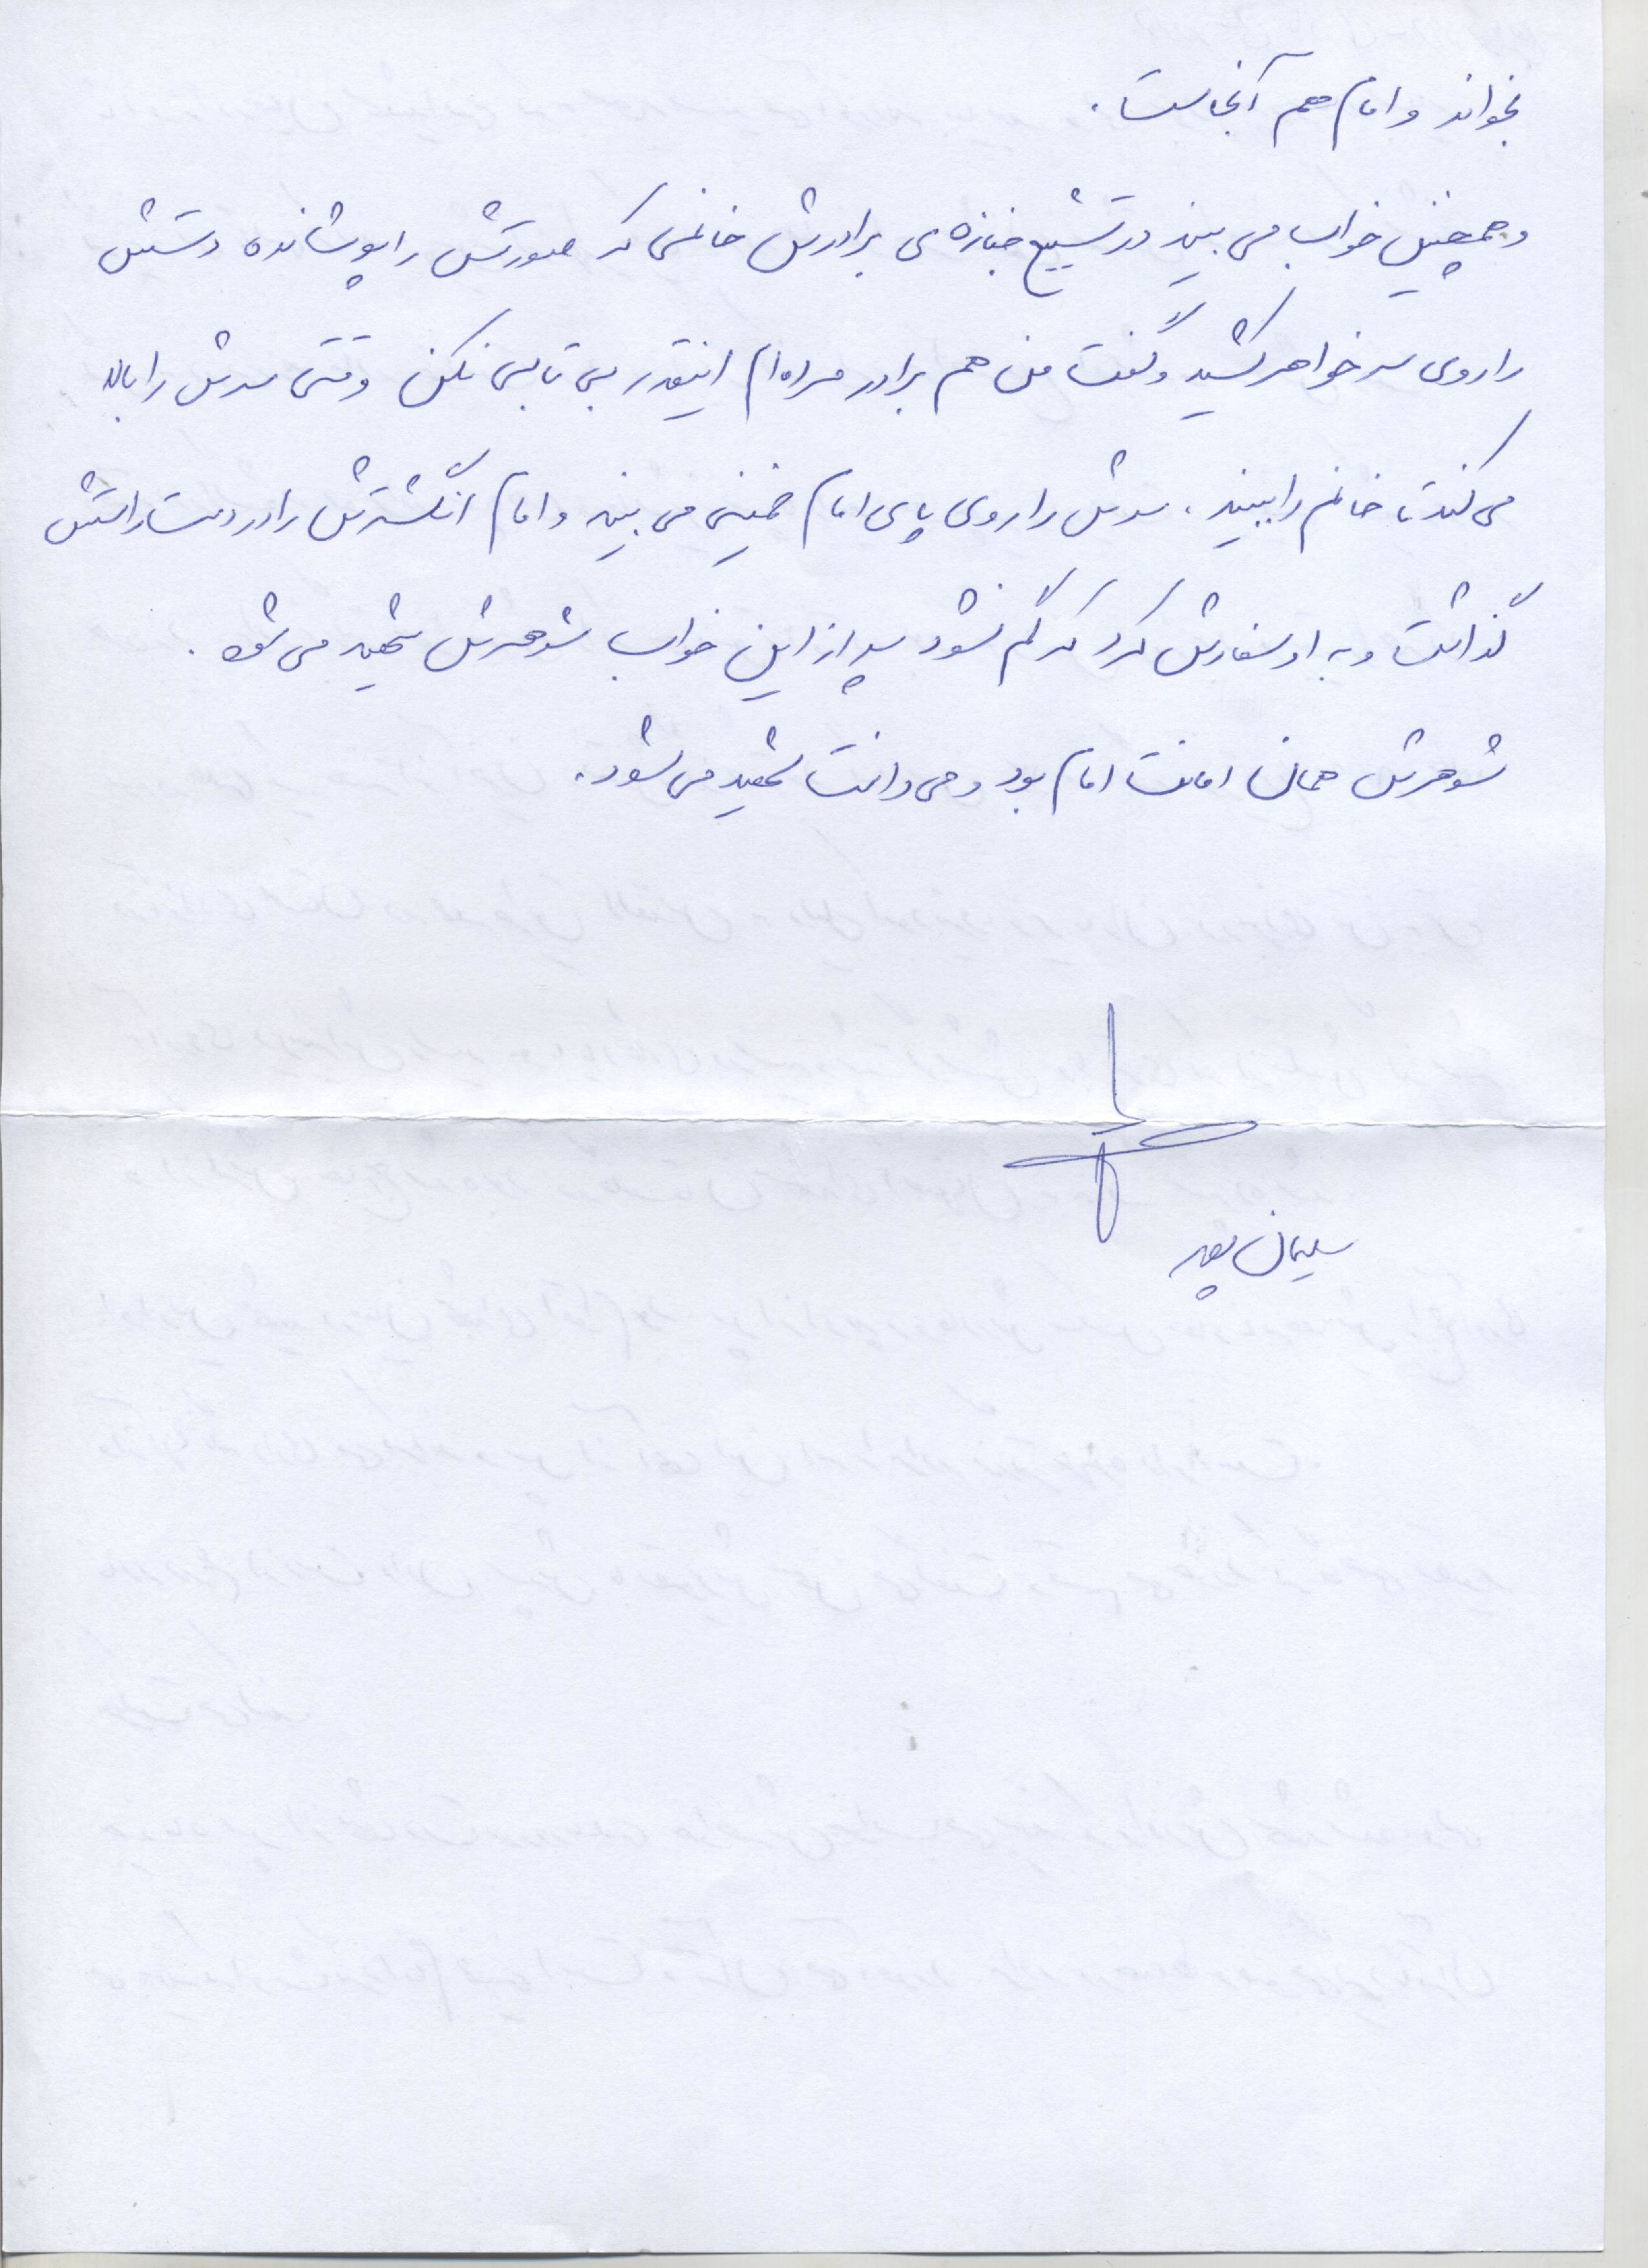 بخواند و امام هم آنجاست .
و همچنین خواب می بیند در تشییع جنازه ی برادرش خانمی که صورتش را پوشانده دستش
را روی سر خواهر کشید و گفت من هم برادر مرده ام اینقدر بی تابی نکن وقتی سرش را بالا
می کند تا خانم را ببیند ، سرش را روی پای امام خمینی می بیند و امام انگشترش را در دست راستش
گذاشت و به او سفارش کرد که گم نشود پس از این خواب شوهرش شهید می شود .
شوهرش همان امانت امام بود و می دانست شهید می شود .
سلیمان پور